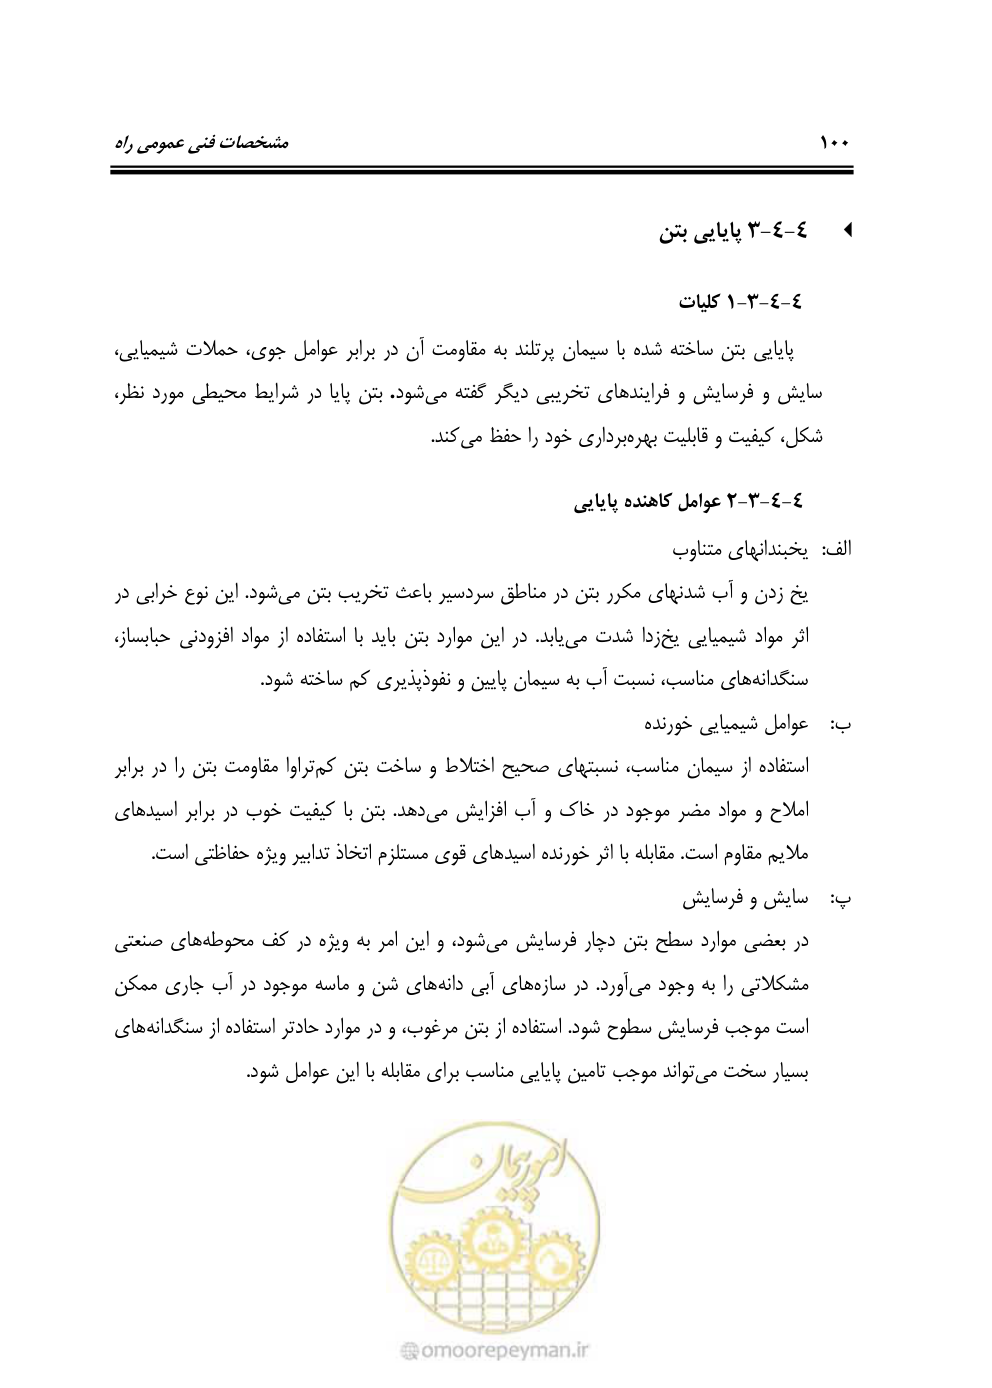 ۱۰۰ مشخصات فنی عمومی راه
٤-٤-۳ پایایی بتن
٤-٤-۳-۱ کلیات
پایایی بتن ساخته شده با سیمان پرتلند به مقاومت آن در برابر عوامل جوی، حملات شیمیایی،
سایش و فرسایش و فرایندهای تخریبی دیگر گفته می‌شود. بتن پایا در شرایط محیطی مورد نظر،
شکل، کیفیت و قابلیت بهره‌برداری خود را حفظ می‌کند.
٤-٤-۳-۲ عوامل کاهنده پایایی
الف: یخبندانهای متناوب
یخ زدن و آب شدنهای مکرر بتن در مناطق سردسیر باعث تخریب بتن می‌شود. این نوع خرابی در
اثر مواد شیمیایی یخ‌زدا شدت می‌یابد. در این موارد بتن باید با استفاده از مواد افزودنی حبابساز،
سنگدانه‌های مناسب، نسبت آب به سیمان پایین و نفوذپذیری کم ساخته شود.
ب: عوامل شیمیایی خورنده
استفاده از سیمان مناسب، نسبتهای صحیح اختلاط و ساخت بتن کم‌تراوا مقاومت بتن را در برابر
املاح و مواد مضر موجود در خاک و آب افزایش می‌دهد. بتن با کیفیت خوب در برابر اسیدهای
ملایم مقاوم است. مقابله با اثر خورنده اسیدهای قوی مستلزم اتخاذ تدابیر ویژه حفاظتی است.
پ: سایش و فرسایش
در بعضی موارد سطح بتن دچار فرسایش می‌شود، و این امر به ویژه در کف محوطه‌های صنعتی
مشکلاتی را به وجود می‌آورد. در سازه‌های آبی دانه‌های شن و ماسه موجود در آب جاری ممکن
است موجب فرسایش سطوح شود. استفاده از بتن مرغوب، و در موارد حادتر استفاده از سنگدانه‌های
بسیار سخت می‌تواند موجب تامین پایایی مناسب برای مقابله با این عوامل شود.
امور پیمان
@omoorepeyman.ir